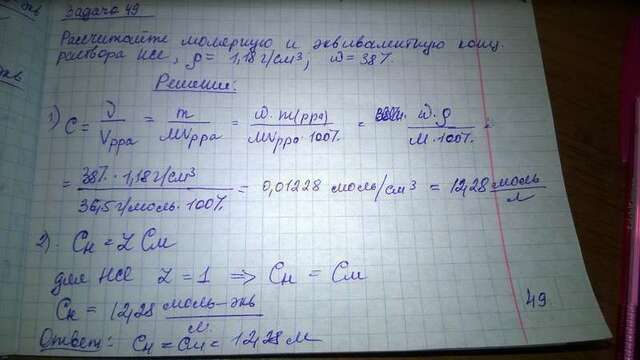 Задача 49
Рассчитайте молярную и эквивалентную конц.
раствора HCl, ρ= 1,18 г/см³, ω= 38%.
Решение:
1) C = ν/Vрра = m/MVрра = ω·m(рра)/MVрра·100% = ω·ρ/M·100% =
= 38%·1,18 г/см³/36,5 г/моль·100% = 0,01228 моль/см³ = 12,28 моль/л
2). Cн = Z Cм
для HCl Z = 1 => Cн = Cм
Cн = 12,28 моль-экв/л.
Ответ: Cн = Cм = 12,28 М
49